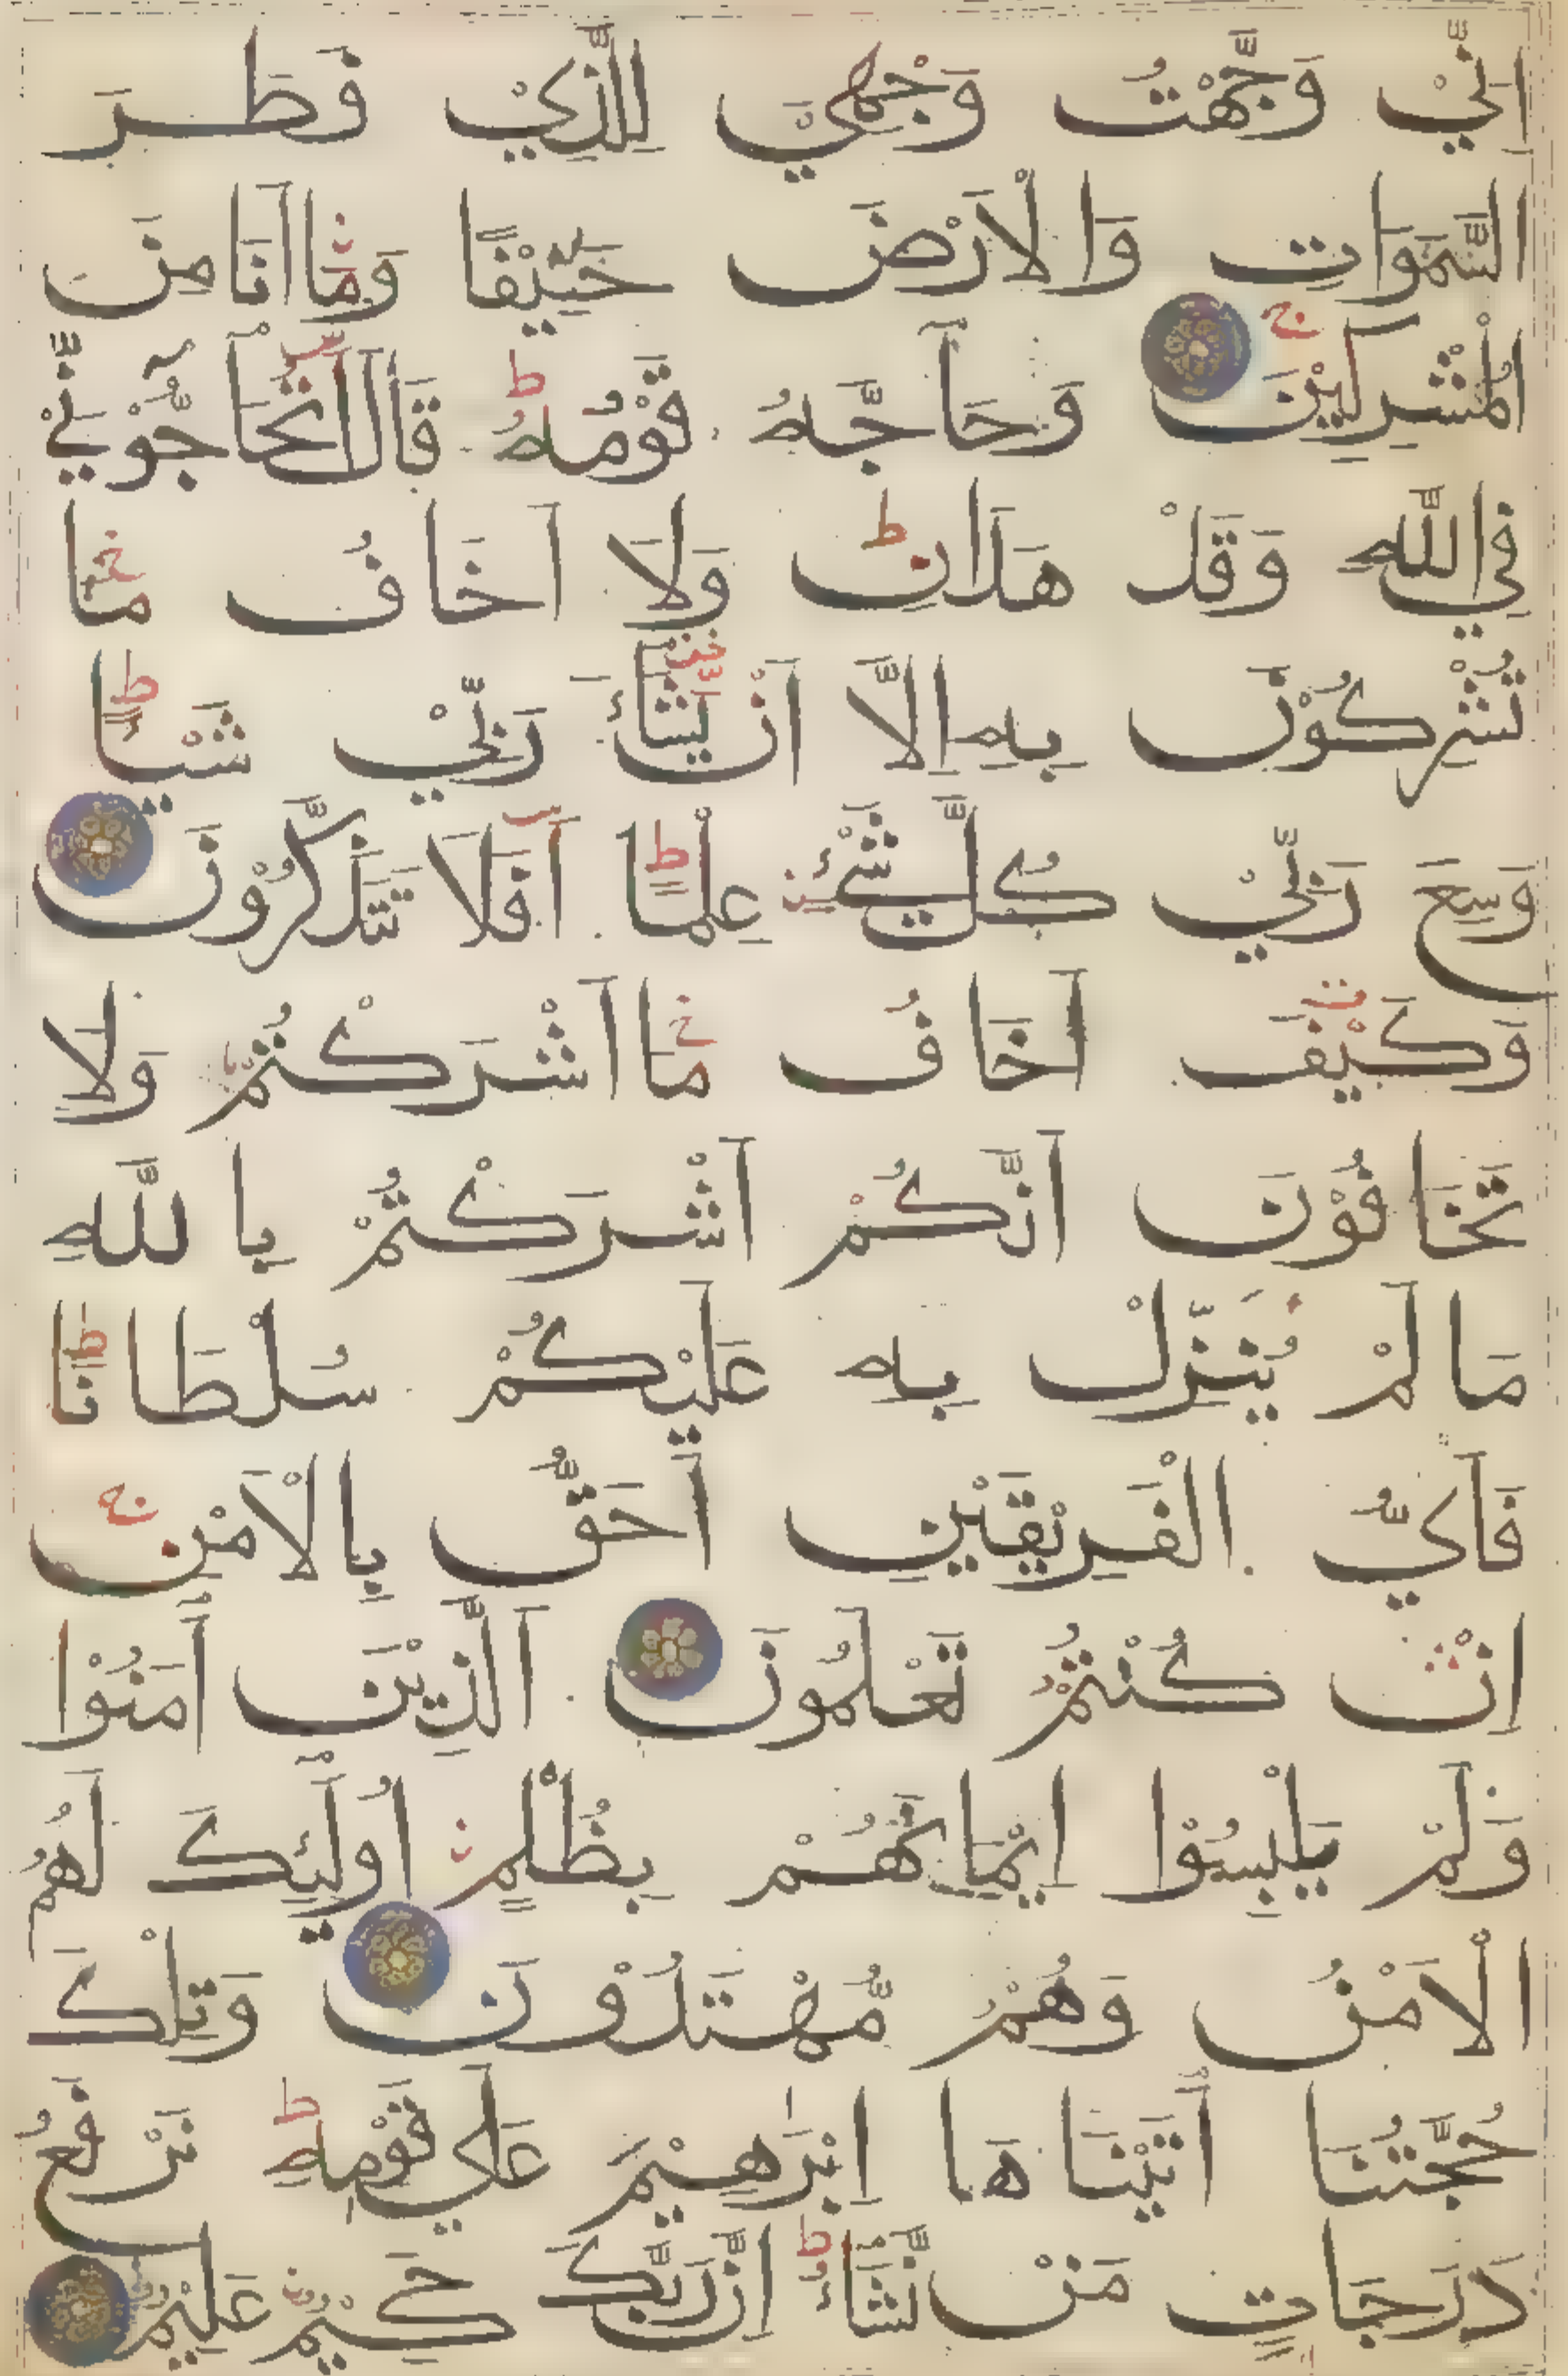 اِنِّيْ وَجَّهْتُ وَجْهِيَ لِلَّذِيْ فَطَرَ
السَّمَوَاتِ وَالْاَرْضَ حَنِيْفًا وَمَا اَنَا مِنَ
الْمُشْرِكِيْنَ ج وَحَاجَّهُ قَوْمُهُ ط قَالَ اَتُحَاجُّوْنِّيْ
فِي اللَّهِ وَقَدْ هَدَانِ ط وَلَا اَخَافُ مَا
تُشْرِكُوْنَ بِهِ اِلَّا اَنْ يَشَاءَ رَبِّيْ شَيْـًٔا ط
وَسِعَ رَبِّيْ كُلَّ شَيْءٍ عِلْمًا ط اَفَلَا تَتَذَكَّرُوْنَ
وَكَيْفَ اَخَافُ مَا اَشْرَكْتُمْ وَلَا
تَخَافُوْنَ اَنَّكُمْ اَشْرَكْتُمْ بِاللَّهِ
مَا لَمْ يُنَزِّلْ بِهِ عَلَيْكُمْ سُلْطَانًا ط
فَاَيُّ الْفَرِيْقَيْنِ اَحَقُّ بِالْاَمْنِ ج
اِنْ كُنْتُمْ تَعْلَمُوْنَ الَّذِيْنَ اٰمَنُوْا
وَلَمْ يَلْبِسُوْا اِيْمَانَهُمْ بِظُلْمٍ اُولٰئِكَ لَهُمُ
الْاَمْنُ وَهُمْ مُّهْتَدُوْنَ وَتِلْكَ
حُجَّتُنَا اٰتَيْنَاهَا اِبْرَاهِيْمَ عَلَي قَوْمِهِ ط نَرْفَعُ
دَرَجَاتٍ مَنْ نَّشَاءُ ط اِنَّ رَبَّكَ حَكِيْمٌ عَلِيْمٌ